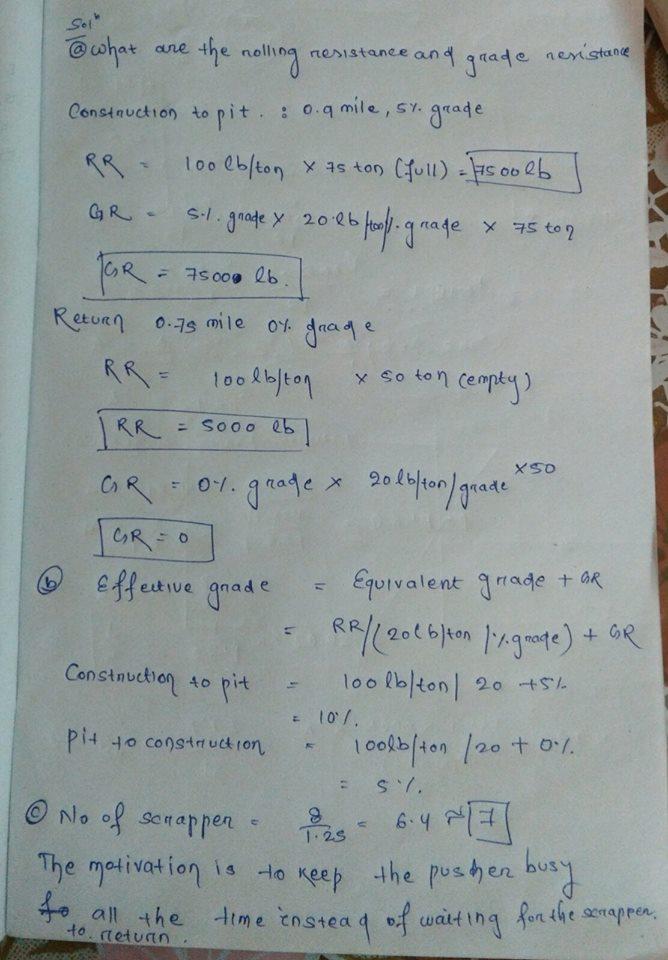 Solⁿ
ⓐ what are the rolling resistance and grade resistance
Construction to pit . : 0.9 mile, 5% grade
RR = 100 lb/ton x 75 ton (full) = 7500 lb
GR = 5% grade x 20 lb/ton/% grade x 75 ton
GR = 7500 lb.
Return 0.75 mile 0% grade
RR = 100 lb/ton x 50 ton (empty)
RR = 5000 lb
GR = 0% grade x 20 lb/ton/grade x50
GR = 0
ⓑ Effective grade = Equivalent grade + GR
= RR/(20 lb/ton /% grade) + GR
Construction to pit = 100 lb/ton / 20 + 5%
= 10%.
Pit to construction = 100 lb/ton /20 + 0%.
= 5%.
ⓒ No of scrapper = 8/1.25 = 6.4 ≈ 7
The motivation is to keep the pusher busy
all the time instead of waiting for the scrapper.
to return.